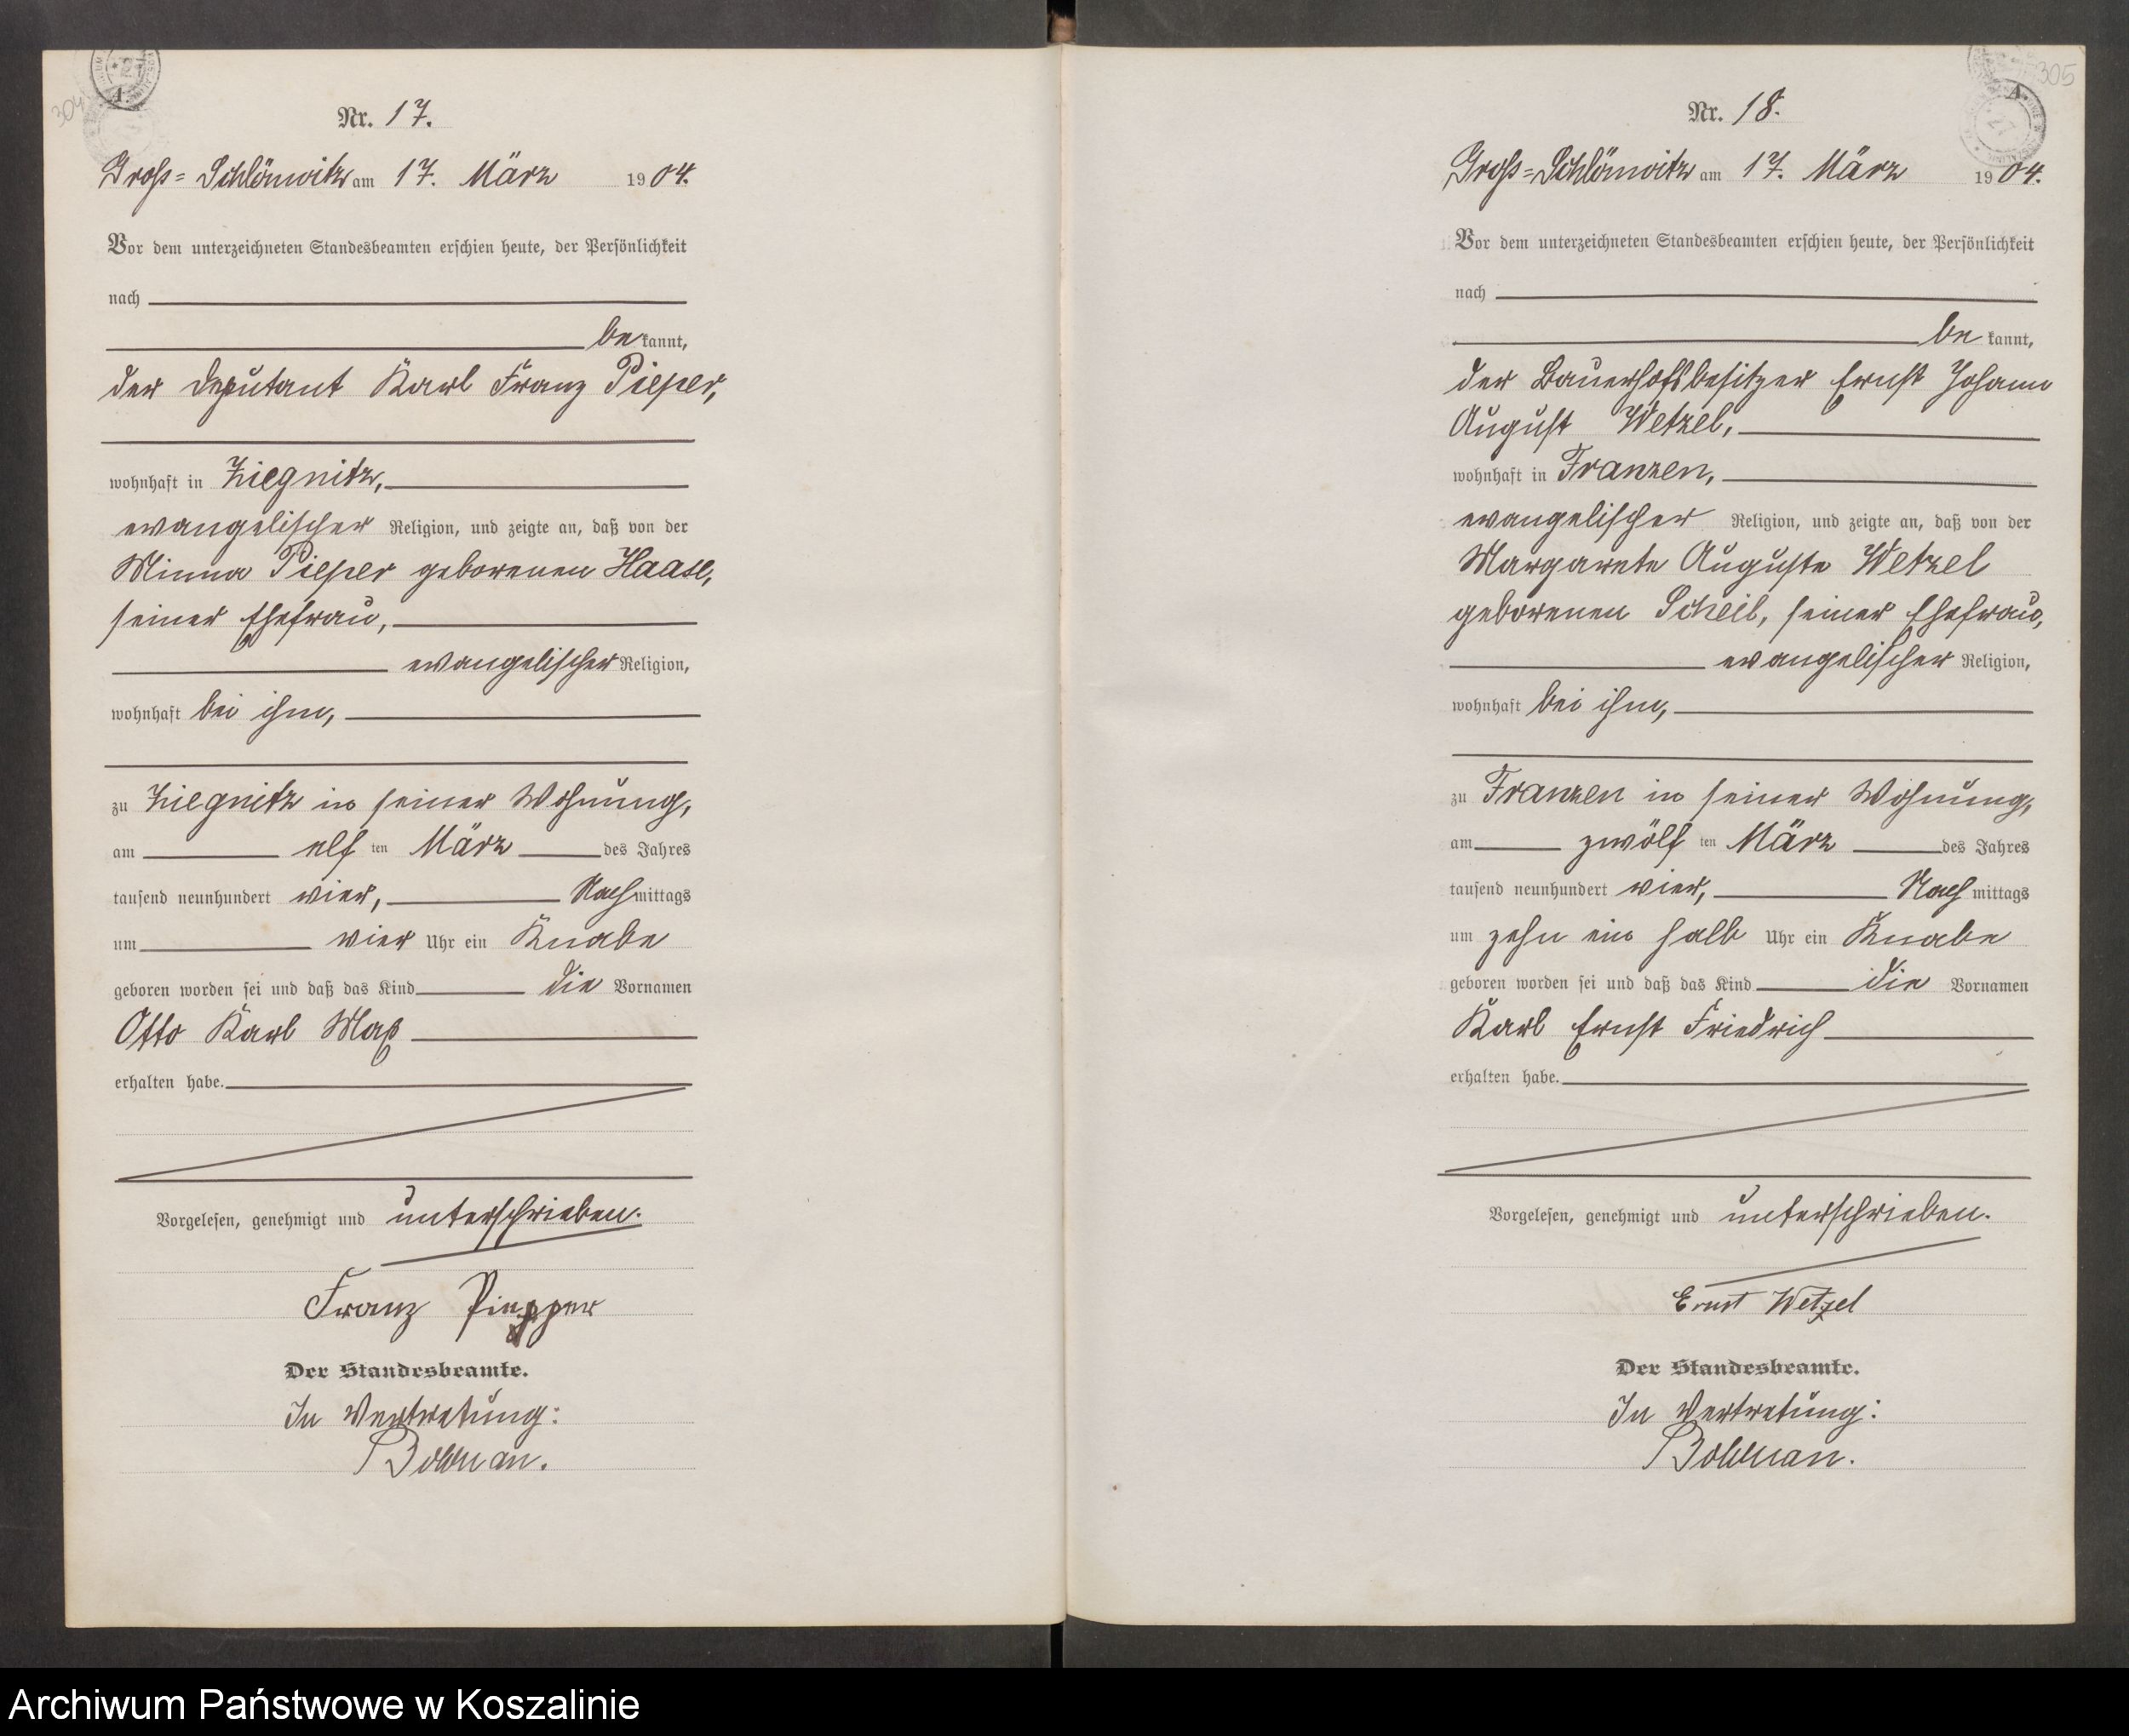 304
A.
Nr. 17.
Groß=Schlönwitz am 17. März 1904.
Vor dem unterzeichneten Standesbeamten erschien heute, der Persönlichkeit
nach
bekannt,
der Deputant Karl Franz Pieper,
wohnhaft in Ziegnitz,
evangelischer Religion, und zeigte an, daß von der
Minna Pieper geborenen Haase,
seiner Ehefrau,
evangelischer Religion,
wohnhaft bei ihm,
zu Ziegnitz in seiner Wohnung,
am elf ten März des Jahres
tausend neunhundert vier, Nachmittags
um vier Uhr ein Knabe
geboren worden sei und daß das Kind die Vornamen
Otto Karl Max
erhalten habe.
Vorgelesen, genehmigt und unterschrieben.
Franz Piepper
Der Standesbeamte.
In Vertretung:
305
A.
Nr. 18.
Groß=Schlönwitz am 17. März 1904.
Vor dem unterzeichneten Standesbeamten erschien heute, der Persönlichkeit
nach
bekannt,
der Bauerhofsbesitzer Ernst Johann
August Wetzel,
wohnhaft in Franzen,
evangelischer Religion, und zeigte an, daß von der
Margarete Auguste Wetzel
geborenen Scheil, seiner Ehefrau,
evangelischer Religion,
wohnhaft bei ihm,
zu Franzen in seiner Wohnung,
am zwölf ten März des Jahres
tausend neunhundert vier, Nachmittags
um zehn ein halb Uhr ein Knabe
geboren worden sei und daß das Kind die Vornamen
Karl Ernst Friedrich
erhalten habe.
Vorgelesen, genehmigt und unterschrieben.
Ernst Wetzel
Der Standesbeamte.
In Vertretung:
Archiwum Państwowe w Koszalinie